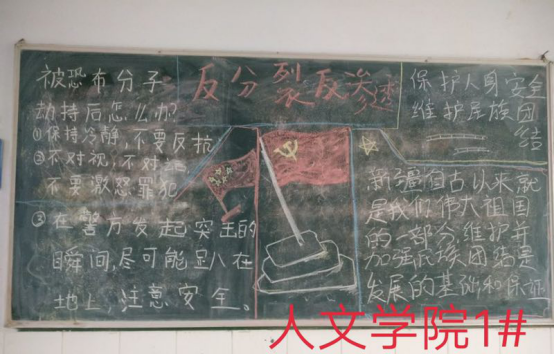 反分裂反渗透
被恐布分子
劫持后怎么办?
①保持冷静,不要反抗
②不对视,不对
不要激怒罪犯
③在警方发起突击的
瞬间,尽可能趴在
地上,注意安全。
保护人身安全
维护民族团
结
新疆自古以来就
是我们伟大祖国
的一部分,维护并
加强民族团结是
发展的基础和保证
人文学院1#